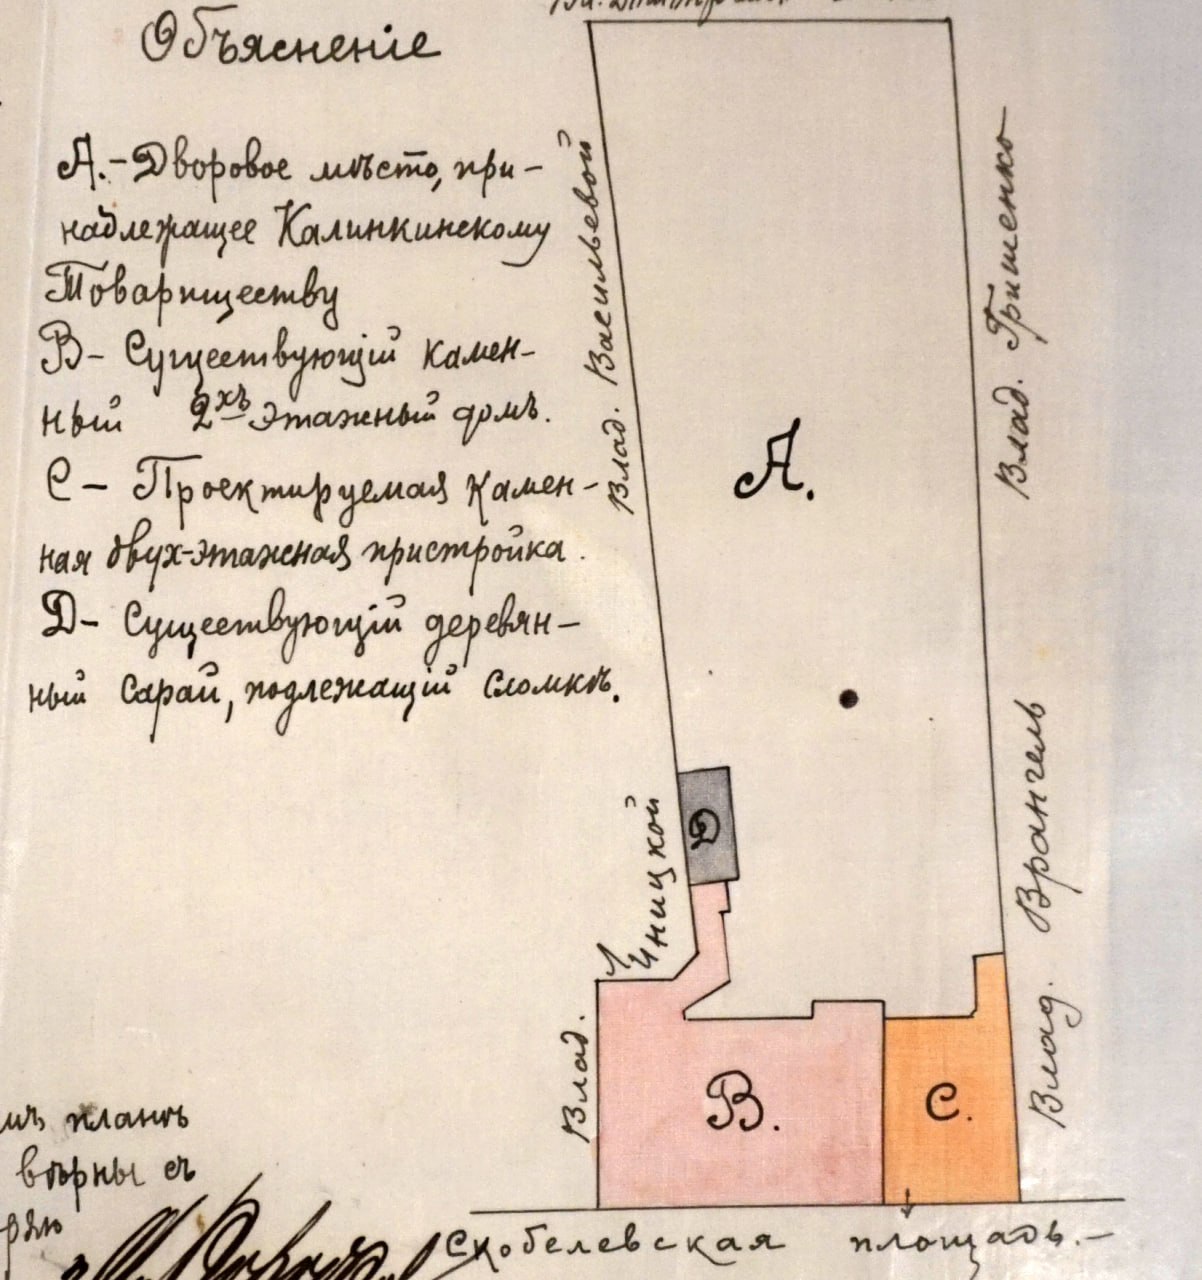 Объясненіе
А.-Дворовое мѣсто, при-
надлежащее Калинкинскому
Товариществу
В- Существующій камен-
ный 2хъ этажный домъ.
С - Проектируемая камен-
ная двух-этажная пристройка.
D- Существующій деревян-
ный сарай, подлежащій сломкѣ.
Влад. Васильевой
Влад. Гришенко
А.
D
Влад. Врангель
Влад. Линицкой
В.
С.
планѣ
вѣрны съ
Скобелевская площадь.-